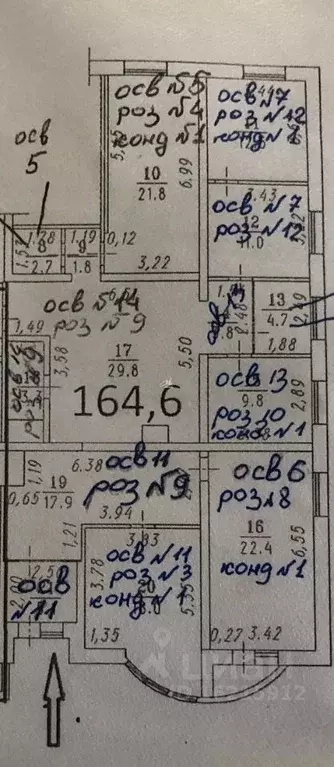 осв №5
роз №4
конд №1
10
21.8
6.99
3.22
осв №7
роз №12
конд №1
осв
5
3.43
осв №7
12
роз №12
11.0
1.78
8
2.7
1.19
9
1.8
0,12
осв №14
роз №9
1,49
3,58
17
29.8
5,50
164,6
13
4.7
1,88
осв 13
9.8
роз 10
конд №1
2,89
осв 6
роз 8
16
22.4
конд №1
6,55
0,27
3.42
6.38
осв 11
роз №9
1,19
19
17.9
0,65
3.94
1,21
3,83
осв №11
роз №3
конд №1
3,78
5,35
1,35
осв
№11
ЦИАН